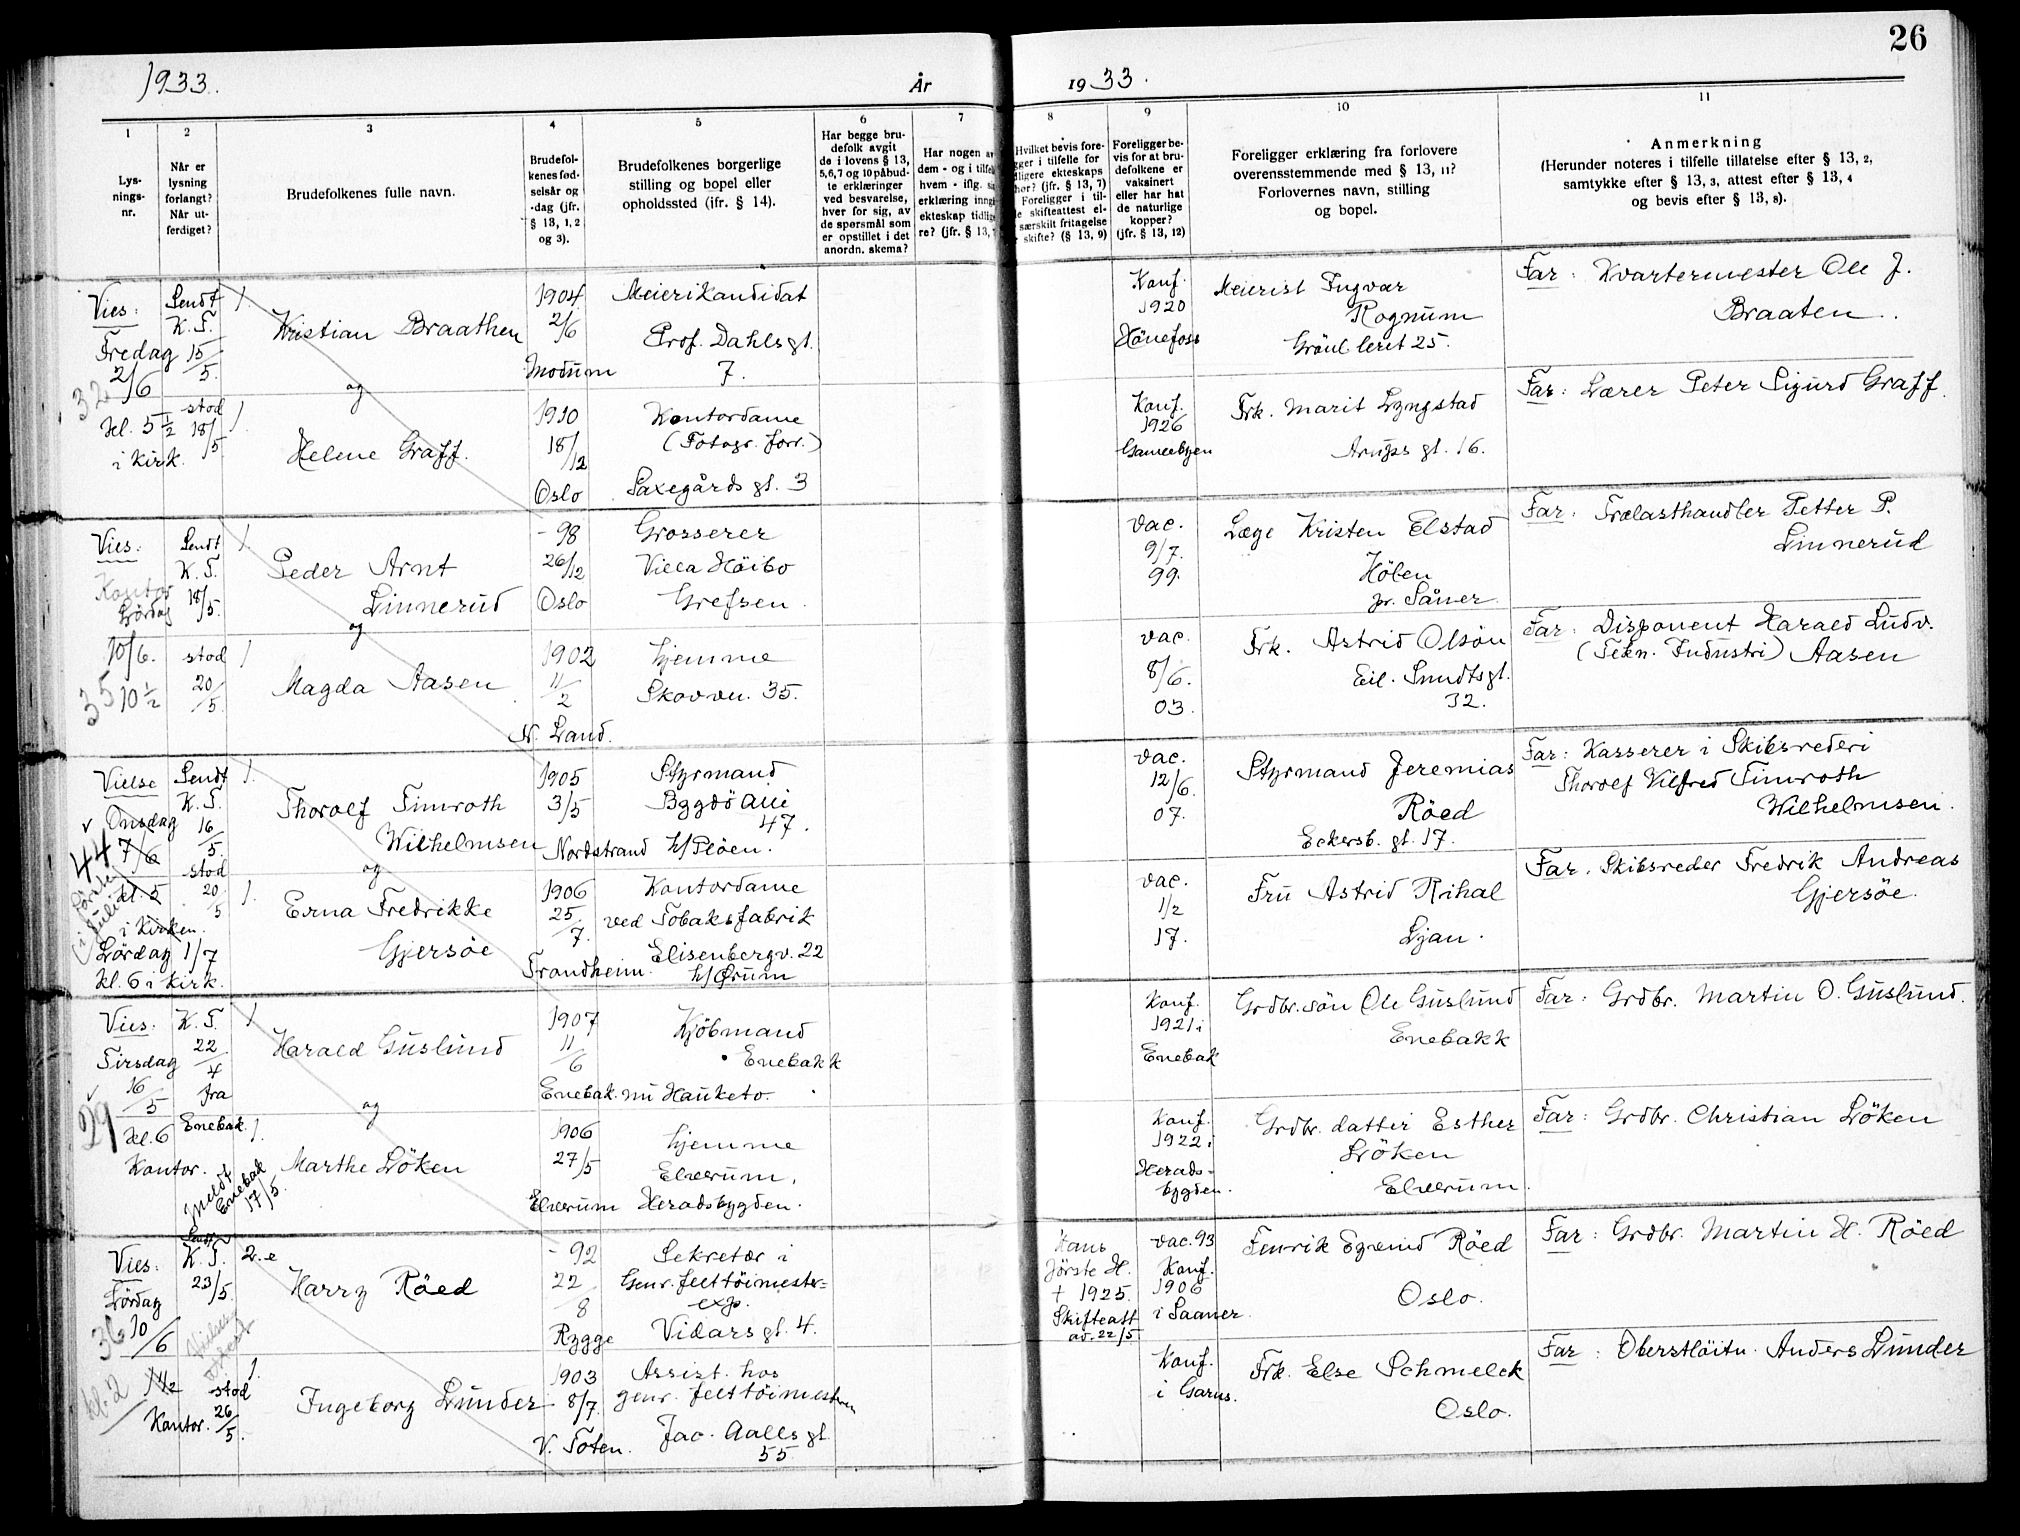 26
1933.
År
1933.
1
2
3
4
5
6
7
8
9
10
11
Lysningsnr.
Når er
lysning
forlangt?
Når ut-
ferdiget?
Brudefolkenes fulle navn.
Brudefol-
kenes fød-
selsår og
-dag (jfr.
§ 13, 1, 2
og 3).
Brudefolkenes borgerlige
stilling og bopel eller
opholdssted (jfr. § 14).
Har begge bru-
defolk avgit
de i lovens § 13,
5, 6, 7 og 10 påbud-
te erklæringer
ved besvarelse,
hver for sig, av
de spørsmål som
er opstillet i det
anordn. skema?
Har nogen av
dem - og i tilfelle
hvem - iflg.
erklæring inngå
ekteskap tidlige
re? (jfr. § 13,
Hvilket bevis fore-
gger i tilfelle for
dligere ekteskaps
hør? (jfr. § 13, 7)
Foreligger i til-
e skifteattest el-
særskilt fritagelse
skifte? (§ 13, 9)
Foreligger be-
vis for at bru-
defolkene er
vaksinert
eller har hat
de naturlige
kopper?
(jfr. § 13, 12)
Foreligger erklæring fra forlovere
overensstemmende med § 13, 11?
Forlovernes navn, stilling
og bopel.
Anmerkning
(Herunder noteres i tilfelle tillatelse efter § 13, 2,
samtykke efter § 13, 3, attest efter § 13, 4
og bevis efter § 13, 8).
Vies:
Fredag
2/6
kl. 5 1/2
i Kirk.
32
Sendt
K.T.
15/5.
stod
18/5
1.
Kristian Braathen
og
1.
Helene Graff.
1904
2/6
Modum
1910
18/12
Oslo
Meierikandidat
Prof. Dahlsgt.
7.
Kontordame
(Fotogr. forr.)
Saxegårds gt. 3
Konf.
1920
Hönefoss
Konf.
1926
Gamlebyen
Meierist Ingvar
Rognum
Grönl leret 25.
Frk. Marit Lyngstad
Arups gt. 16.
Far: Kvartermester Ole J.
Braaten.
Far: Lærer Peter Sigurd Graff.
Vies:
Kontor
Lördag
10/6.
10 1/2
35
Sendt
K.T.
18/5.
stod
20/5.
1.
Peder Arnt
Linnerud
og
1
Magda Aasen
- 98
26/12
Oslo
1902
11/2
N. Land.
Grosserer
Villa Höibo
Grefsen.
hjemme
Skovvn. 35.
vac.
9/7.
99.
vac.
8/6.
03.
Læge Kristen Elstad
Hölen
pr. Såner.
Frk. Astrid Olsön
Eil. Sundtsgt.
32.
Far: Trælasthandler Petter P.
Linnerud
Far: Disponent Harald Ludv.
(Tekn. Industri) Aasen
Vielse
Onsdag
7/6
kl. 5
i Kirken.
Lördag 1/7
kl. 6 i Kirk.
44
Sendt
K.T.
16/5.
stod
20/5
1.
Thorolf Timroth
Wilhelmsen
og
1.
Erna Fredrikke
Gjersöe
1905
3/5
Nordstrand
1906
25/7.
Trondheim.
Styrmand
Bygdö Allé
47.
h/ Plöen.
Kontordame
ved Tobaksfabrik
Elisenbergv. 22
h/ Ørum
vac.
12/6.
07.
vac.
1/2
17.
Styrmand Jeremias
Röed
Eckersb. gt. 17.
Fru Astrid Rihal
Ljan.
Far: Kasserer i Skibsrederi
Thorolf Vilfred Timroth
Wilhelmsen.
Far. Skibsreder Fredrik Andreas
Gjersöe.
Vies:
Tirsdag
16/5
kl. 6
Kontor.
29
K.T.
22/4
fra
Enebak.
meldt
Enebak
17/5.
1
Harald Guslund
og
1.
Marthe Löken
1907
11/6
Enebak.
1906
27/5
Elverum
Kjöbmand
Enebakk
nu Hauketo.
hjemme
Elverum,
Heradsbygden.
Konf.
1921 i
Enebak
Konf.
1922 i
Herads-
bygden.
Grdbr. sön Ole Guslund
Enebakk
Grdbr. datter Esther
Löken
Elverum.
Far: Grdbr. Martin O. Guslund.
Far: Grdbr. Christian Löken
Vies:
Lördag
10/6
kl. 2
Kontor.
36
Sendt
K.T.
23/5
stod
26/5.
2.e
Harry Röed
1.
Ingeborg Lunder
- 92
22/8
Rygge
1903
8/7.
V. Toten.
Sekretær i
Genr. felttöimester-
exp.
Vidars gt. 4.
Assist. hos
genr. felttöimesteren
Jac. Aalls gt.
55
Hans
förste H.
+ 1925.
Skifteatt
av. 22/5
vac. 93
Konf.
1906
i Saaner.
Konf.
i Garns.
Fenrik Egenind Röed
Oslo.
Frk. Else Schmelck
Oslo.
Far: Grdbr. Martin H. Röed
Far: Oberstlöitn. Anders Lunder